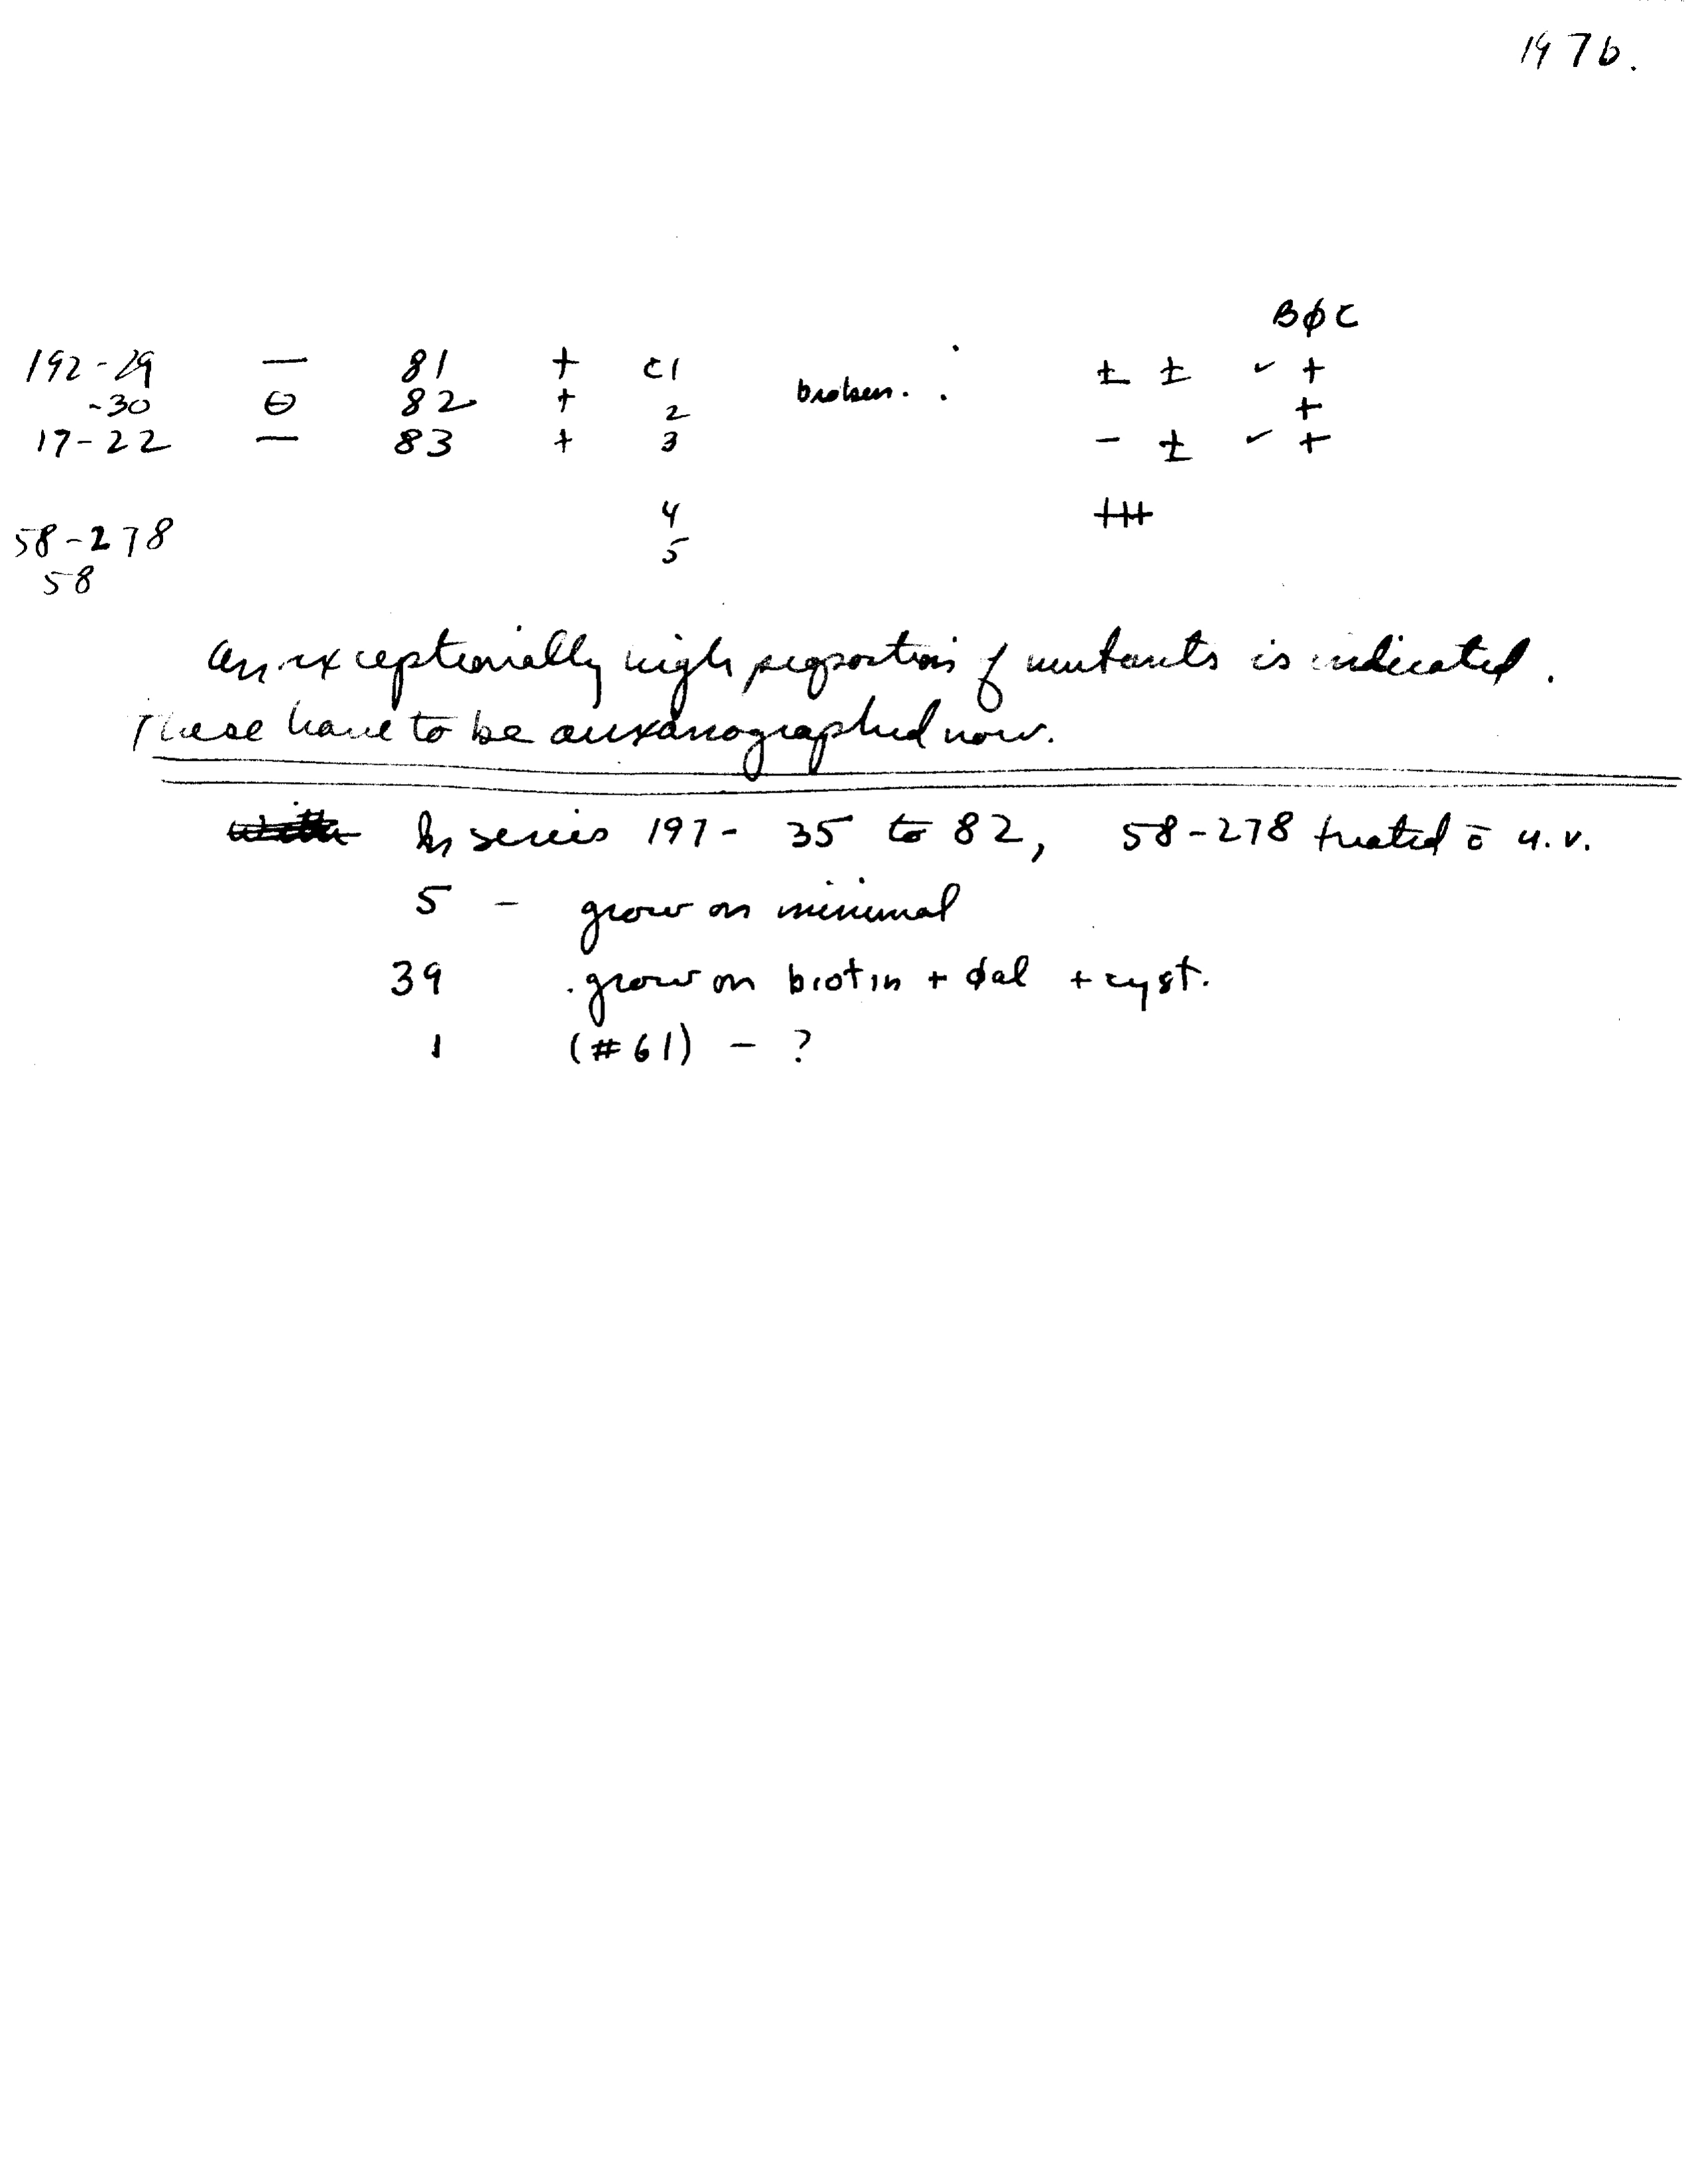 197b.
BϕC
192-29 — 81 + c1 ± ± ✓ +
-30 ⊖ 82 + 2 broken. +
17-22 — 83 + 3 - ± ✓ +
4 +++
58-278 5
58
An exceptionally high proportion of mutants is indicated.
These have to be auxanographed now.
In series 197- 35 to 82, 58-278 treated c̄ u.v.
5 - grow on minimal
39 grow on biotin + ϕal + cyst.
1 (#61) - ?